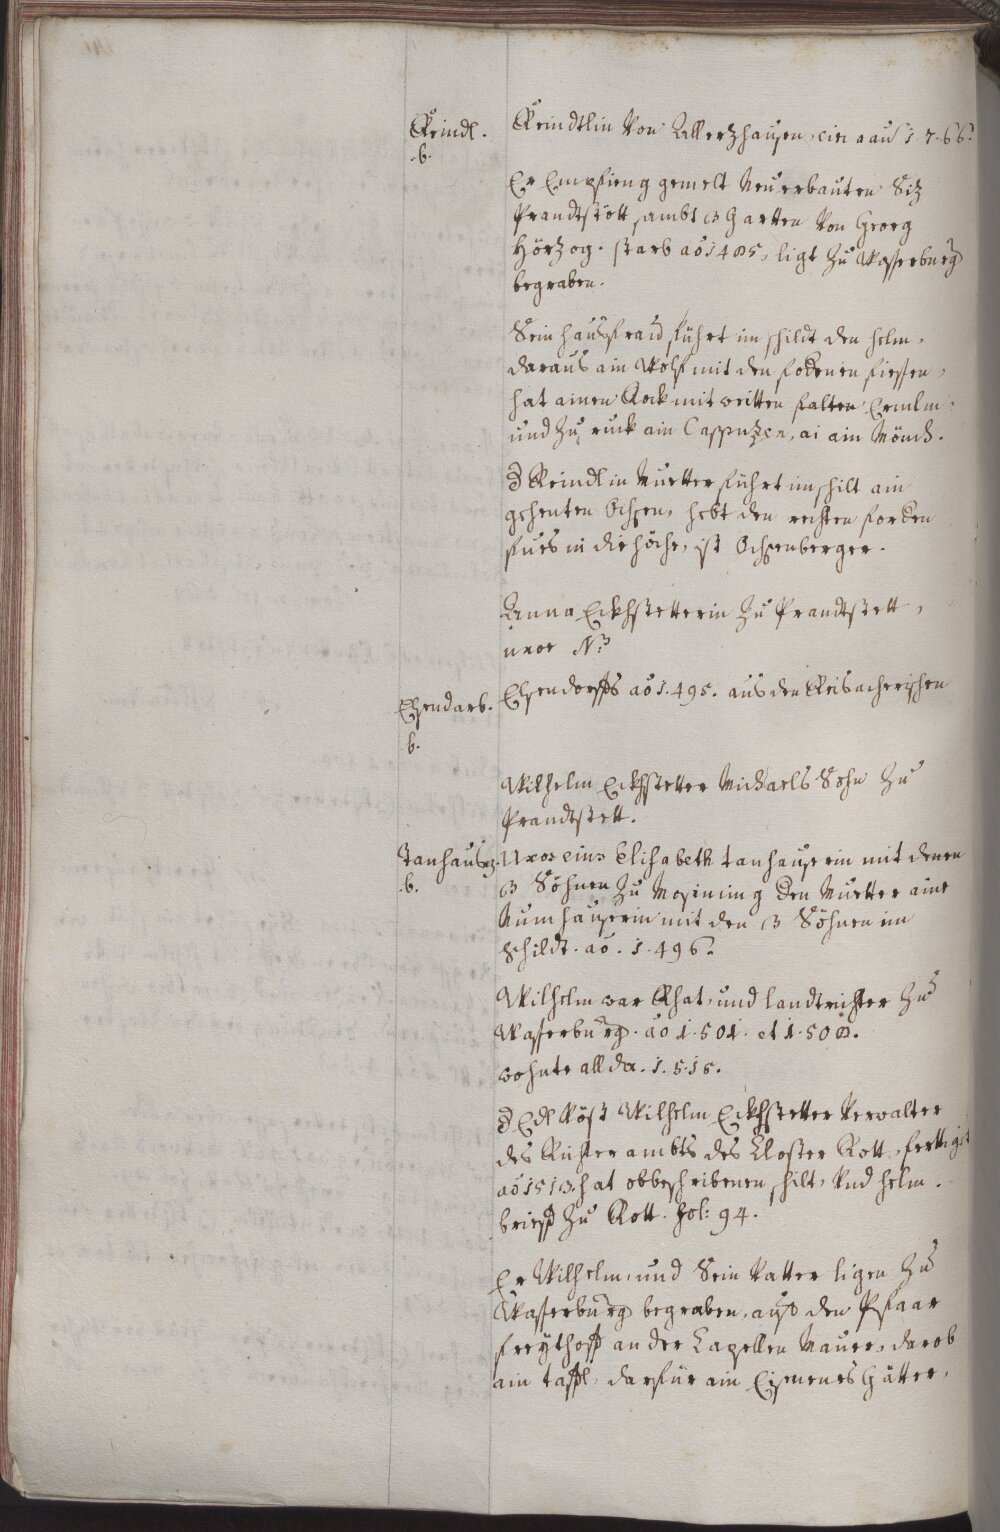 Reindl. b.
Reindtlin Von Allerzhausen, circa aũ 1.7.66.
Er Empfieng gemelt Neuerbauten Siz
Prandtstött sambt 3 Gartten Von Georg
Hörzog. starb aõ 1485, ligt Zu Wasserburg
begraben.
Sein hausfrau führt im schildt den helm,
daraus ain Wolf mit den fodern fiessen,
hat ainen Rock mit weitten falten Ermlm,
und Zu ruck ain Cappuzen, ai ain Mönch.
D Reindlin Muetter führt im schilt ain
gehenten Ochsen, hebt den rechten fordern
fues in die höche, ist Ochsenberger.
Anna Eckhstetterin Zu Prandtstett,
uxor N:
Elsendorffs aõ 1.495. aus den Reisacherischen
Elsendarb. b.
Wilhelm Eckhstetter Michaels Sohn Zu
Prandtstett.
Tanhaus. b.
Uxor eius Elisabeth tanhauserin mit denen
3 Söhnen Zu Mosining den Muetter aine
Numhauserin mit den 3 Söhnen im
Schildt. aõ. 1.496.
Wilhelm war Rhat, und landtrichter Zu
Wasserburg. aõ 1.501. et 1.508.
wohnte allda. 1.515.
D Edl Vöst Wilhelm Eckhstetter Verwalter
des Richter ambts des Closter Rott, fertiget
aõ 1513. hat obbeschribenen schilt, Vnd helm.
brieff Zu Rott. fol: 94.
Er Wilhelm, und Sein Vatter ligen Zu
Wasserburg begraben, auf den Pfaar
freythoff an der Capellen Mauer, darob
ain taffl, darfür ain Eisenenes Gätter,